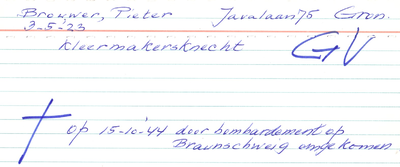 Brouwer, Pieter Javalaan 75 Gron.
3-5-23
kleermakersknecht GV
op 15-10-'44 door bombardement op
Braunschweig omgekomen